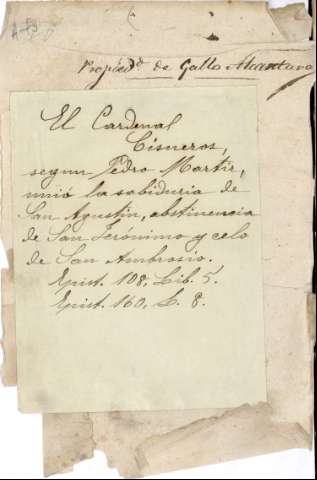 Propied.d de Gallo Alcantara
El Cardenal
Cisneros,
segun Pedro Martir,
unió la sabiduria de
San Agustin, abstinencia
de San Jerónimo y celo
de San Ambrosio.
Epist. 108, Lib. 5.
Epist. 160, L. 8.